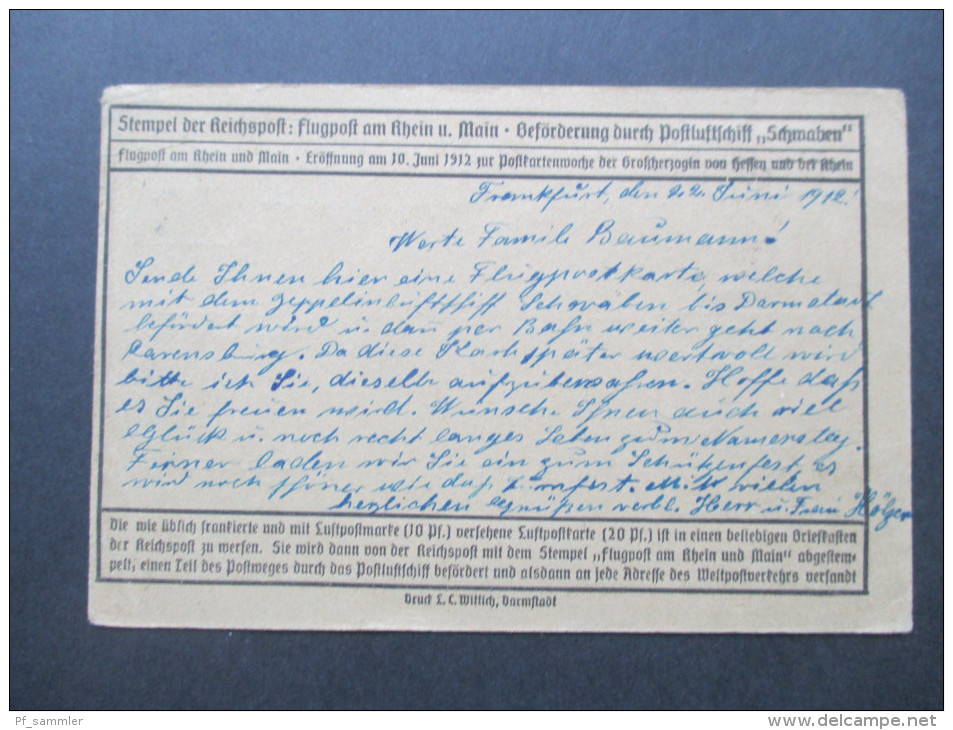 Stempel der Reichspost: Flugpost am Rhein u. Main · Beförderung durch Postluftschiff „Schwaben“
Flugpost am Rhein und Main · Eröffnung am 10. Juni 1912 zur Postkartenwoche der Großherzogin von Hessen und bei Rhein
Frankfurt, den 22. Juni 1912!
Werte Famile Baumann!
Sende Ihnen hier eine Flugpostkarte, welche
mit dem Zeppelinluftschiff Schwaben bis Darmstadt
befördert wird u. dan per Bahn weiter geht nach
Ravensburg. Da diese Karte später wertvoll wird
bitte ich Sie, dieselbe aufzubewahren. Hoffe daß
es Sie freuen wird. Wünsche Ihnen auch viel
Glück u. noch recht langes Leben zum Namenstag.
Ferner laden wir Sie ein zum Schützenfest, es
wird noch schöner wie daß Turnfest. Mit vielen
herzlichen Grüßen verbl. Herr u. Frau Hölzer
Die wie üblich frankierte und mit Luftpostmarke (10 Pf.) versehene Luftpostkarte (20 Pf.) ist in einen beliebigen Briefkasten
der Reichspost zu werfen. Sie wird dann von der Reichspost mit dem Stempel „Flugpost am Rhein und Main“ abgestem-
pelt, einen Teil des Postweges durch das Postluftschiff befördert und alsdann an jede Adresse des Weltpostverkehrs versandt
Druck L. C. Wittich, Darmstadt
Pf_sammler
www.delcampe.net